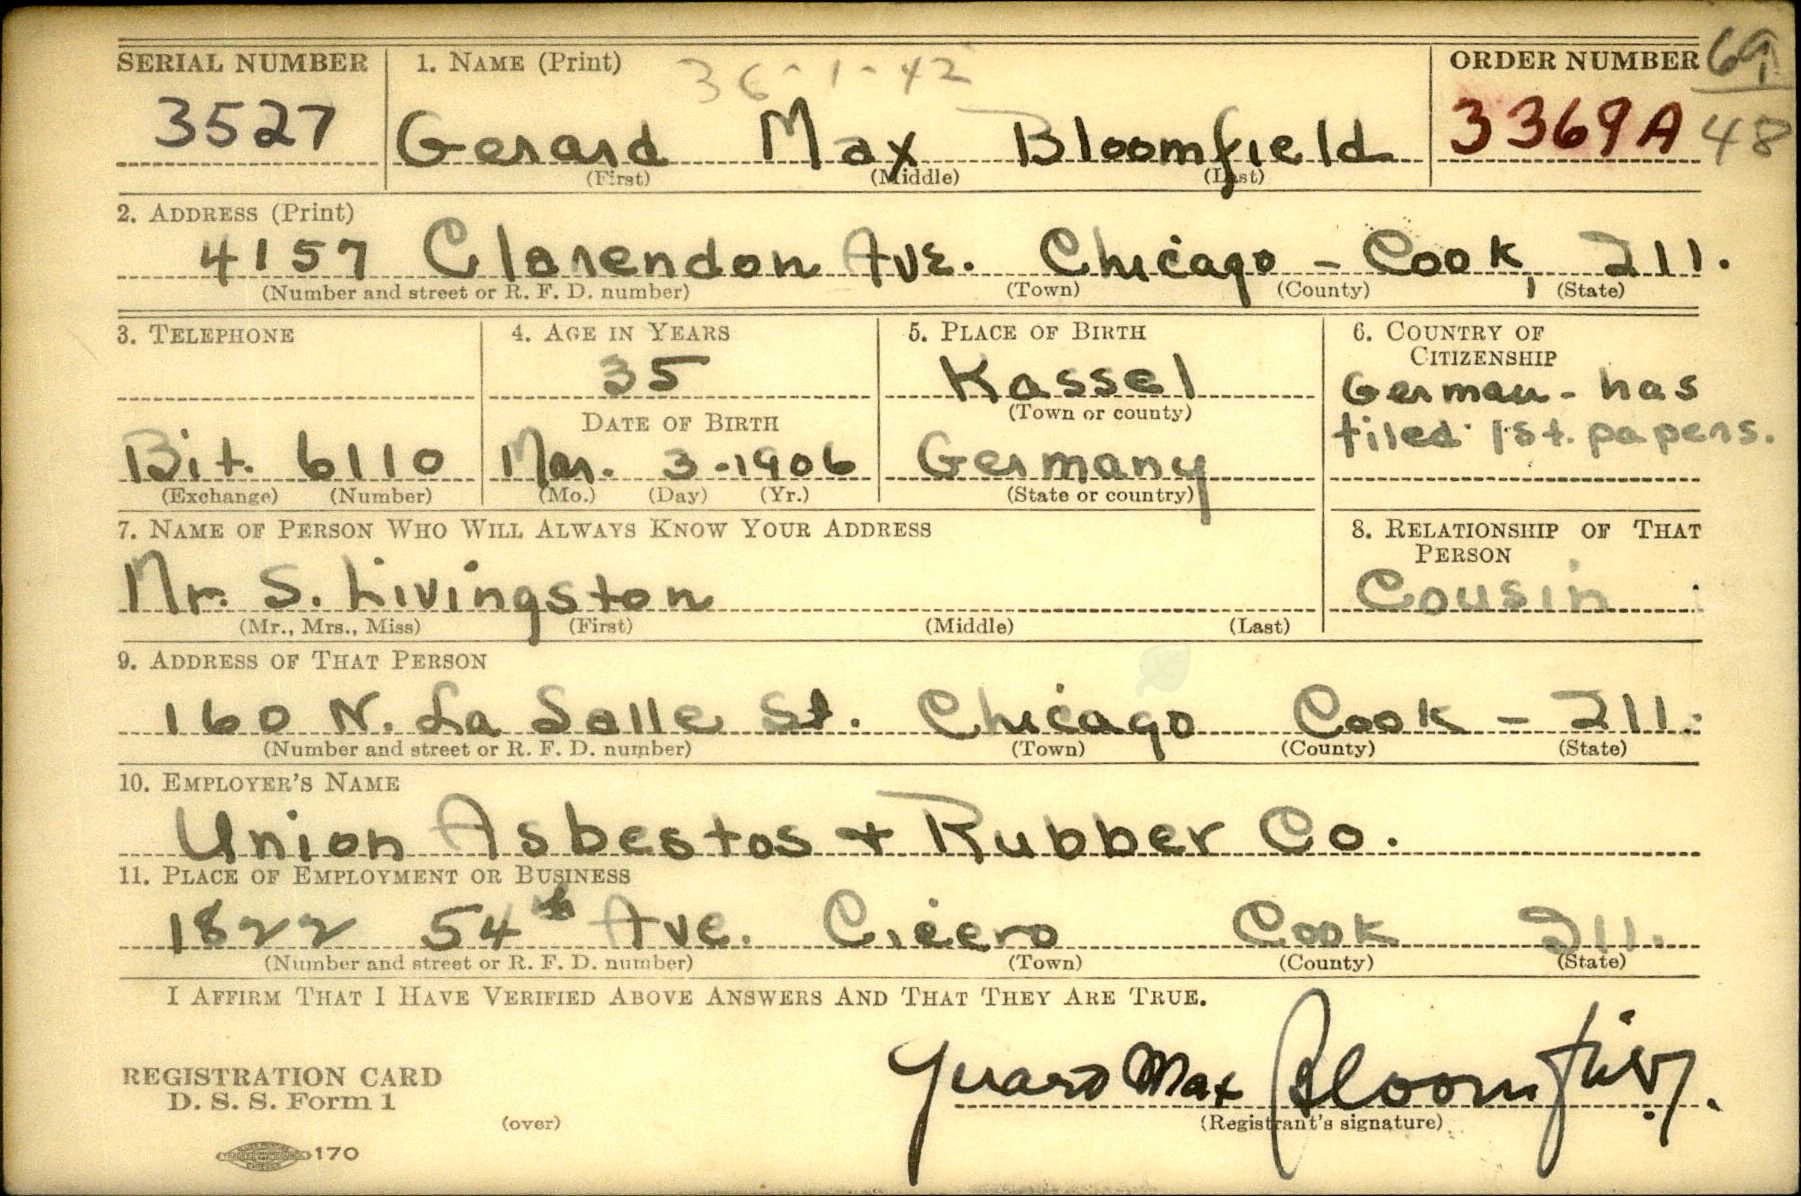 SERIAL NUMBER 1. NAME (Print) 36-1-42 ORDER NUMBER 69
3527 Gerard Max Bloomfield 3369A 48
(First) (Middle) (Last)
2. ADDRESS (Print)
4157 Clarendon Ave. Chicago - Cook, Ill.
(Number and street or R. F. D. number) (Town) (County) (State)
3. TELEPHONE 4. AGE IN YEARS 5. PLACE OF BIRTH 6. COUNTRY OF
CITIZENSHIP
35 Kassel German - has
(Town or county)
DATE OF BIRTH filed 1st. papers.
Bit. 6110 Mar. 3-1906 Germany
(Exchange) (Number) (Mo.) (Day) (Yr.) (State or country)
7. NAME OF PERSON WHO WILL ALWAYS KNOW YOUR ADDRESS 8. RELATIONSHIP OF THAT
PERSON
Mr. S. Livingston Cousin
(Mr., Mrs., Miss) (First) (Middle) (Last)
9. ADDRESS OF THAT PERSON
160 N. La Salle St. Chicago Cook - Ill.
(Number and street or R. F. D. number) (Town) (County) (State)
10. EMPLOYER'S NAME
Union Asbestos + Rubber Co.
11. PLACE OF EMPLOYMENT OR BUSINESS
1822 54th Ave. Cicero Cook Ill.
(Number and street or R. F. D. number) (Town) (County) (State)
I AFFIRM THAT I HAVE VERIFIED ABOVE ANSWERS AND THAT THEY ARE TRUE.
REGISTRATION CARD
D. S. S. Form 1 Gerard Max Bloomfield.
(over) (Registrant's signature)
170